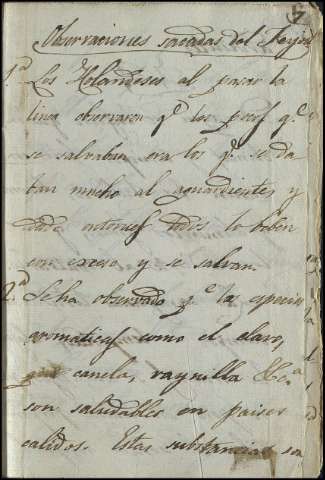 Observaciones sacadas del
1.ª Los Holandeses al pasar la
linea observaron q.e los q.e
se salvaban era los q.e se da
ban mucho al aguardiente, y
desde entonces todos lo beben
con exceso, y se salvan.
2.ª Se ha observado q.e las especias
aromaticas como el clavo,
canela, vaynilla &c.a
son saludables en paises
calidos. Estas substancias son